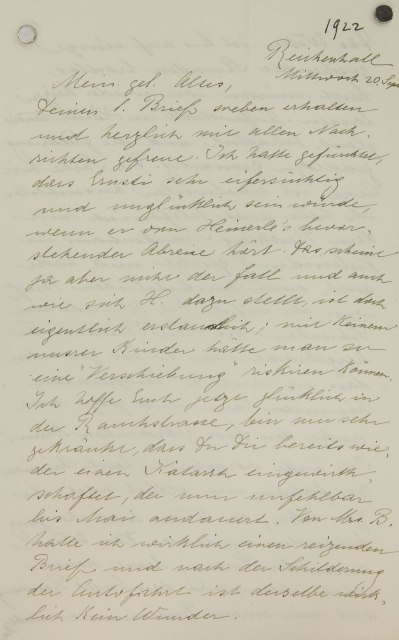 1922
Reichenhall
Mittwoch 20 Sept
Mein gel. Altes,
Deinen l. Brief soeben erhalten
und herzlich mit allen Nach-
richten gefreut. Ich hatte gefürchtet,
dass Ernsti sehr eifersüchtig
und unglücklich sein würde,
wenn er von Heinerle's bevor-
stehender Abreise hört. Das scheint
ja aber nicht der Fall und auch
wie sich H. dazu stellt, ist doch
eigentlich erstaunlich; mit keinem
unsrer Kinder hätte man so
eine "Verschiebung" riskiren können.
Ich hoffe Euch jetzt glücklich in
der Rauchstrasse, bin nur sehr
gekränkt, dass Du Dir bereits wie-
der einen Katarrh eingewirth-
schaftet, der nun unfehlbar
bis Mai andauert. Von Mrs. B.
hatte ich wirklich einen reizenden
Brief und nach der Schilderung
der Autofahrt ist derselbe wirk-
lich kein Wunder.